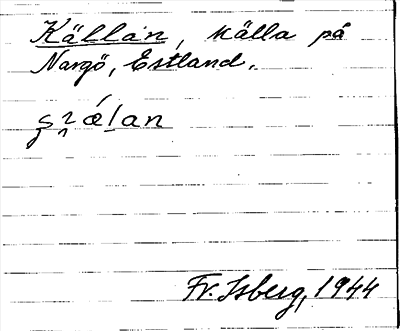 Källan, källa på
Nargö, Estland.
Fr. Isberg, 1944